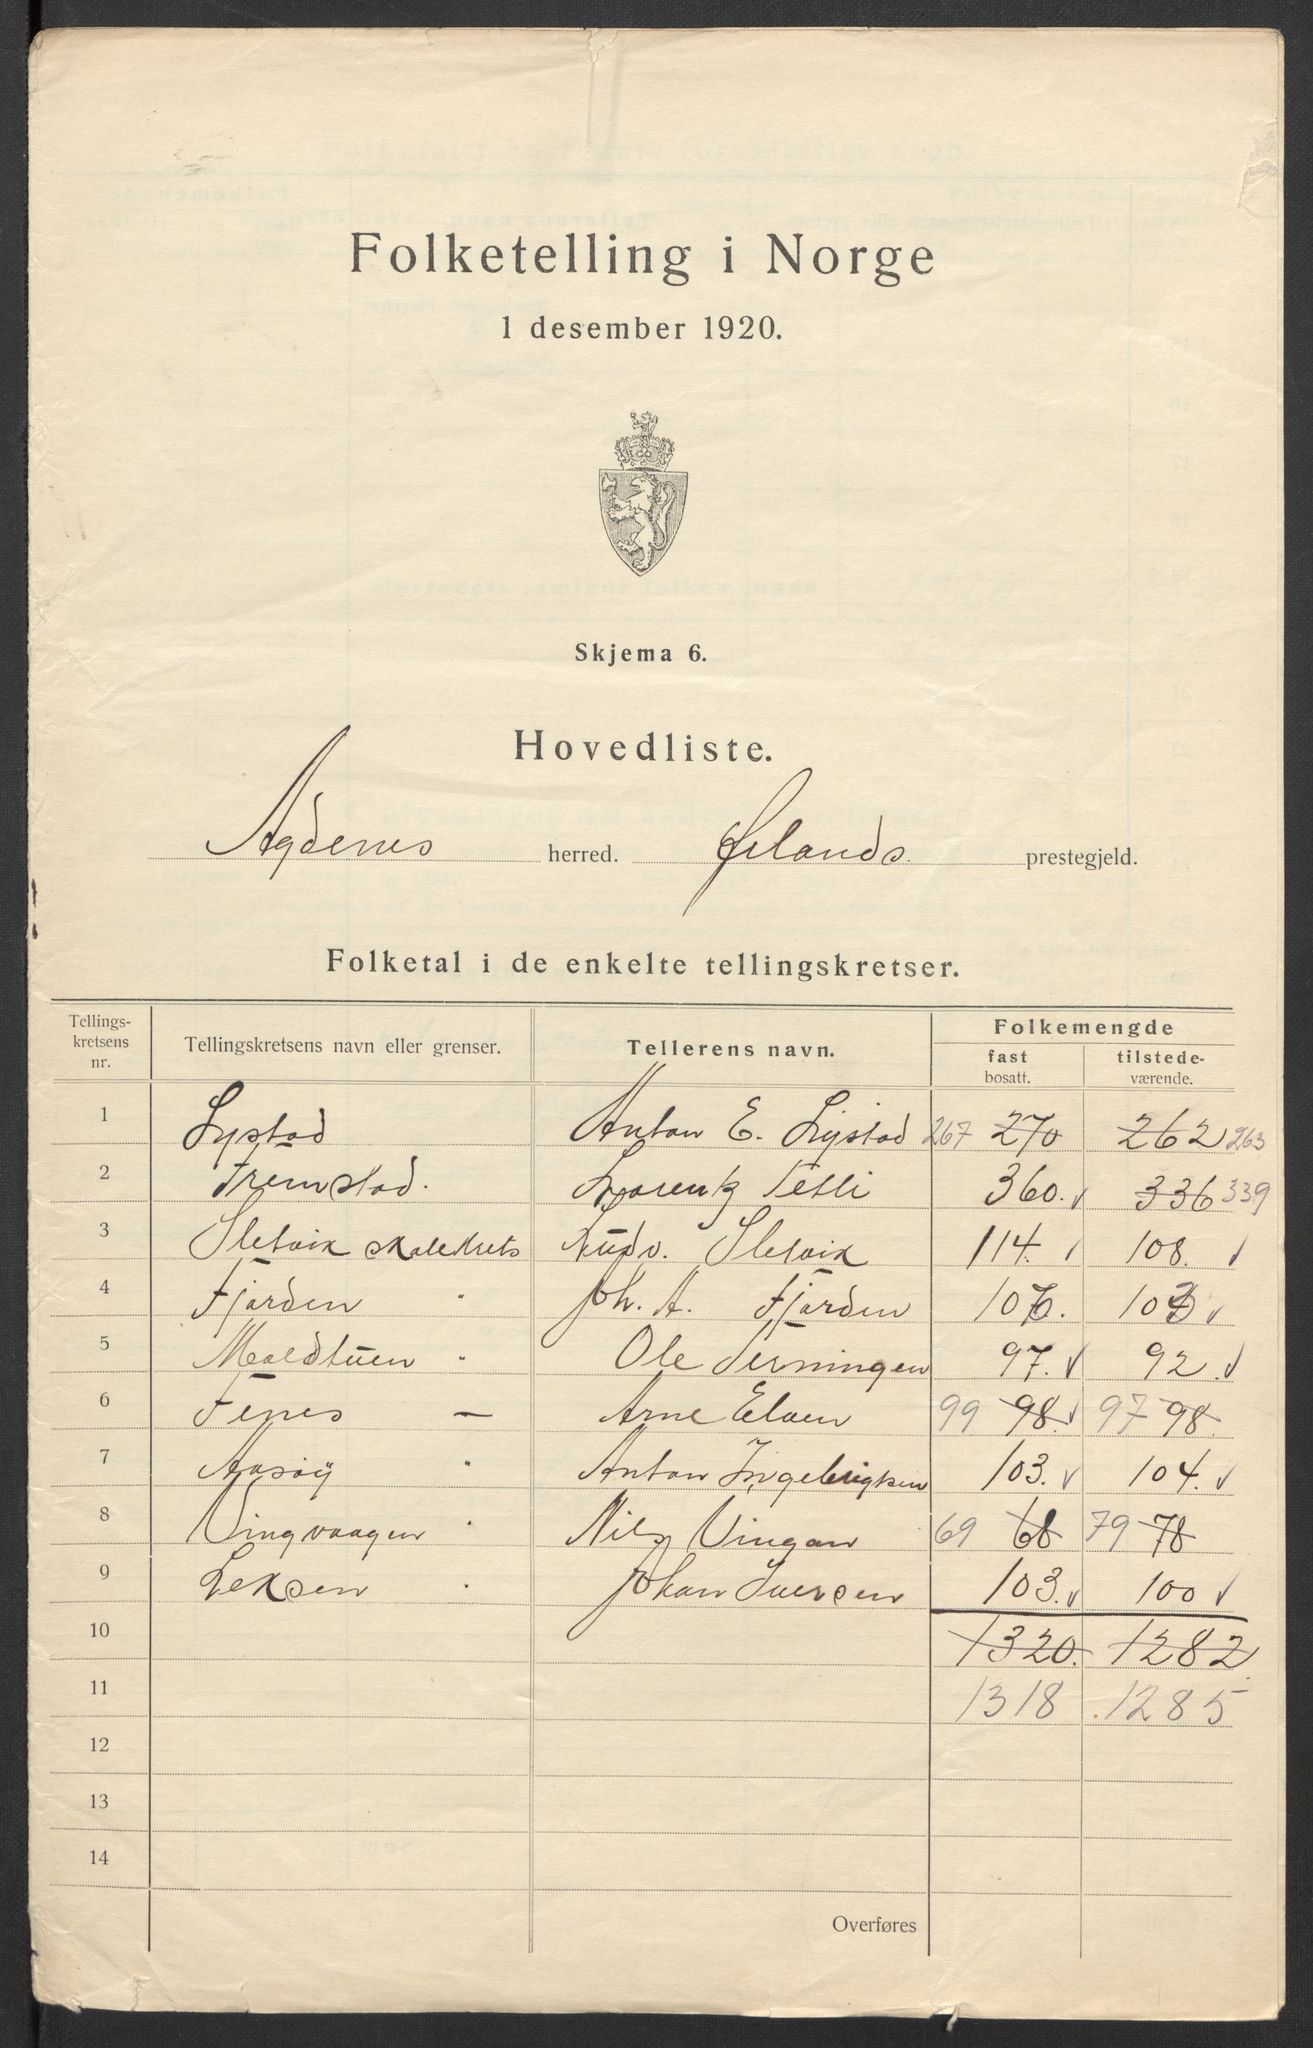 Folketelling i Norge
1 desember 1920.
Skjema 6.
Hovedliste.
Agdenes herred. Ørlands prestegjeld.
Folketal i de enkelte tellingskretser.
Tellings-kretsens nr. Tellingskretsens navn eller grenser. Tellerens navn. Folkemengde
fast bosatt. tilstede-værende.
1 Lystad Anton E. Lystad 267 270 262 263
2 Fremstad. Lorentz Tetli 360. √ 336 339
3 Sletvik skolekrets Ludv. Sletvik 114. √ 108. √
4 Fjorden " Joh. A. Fjorden 106. 103 √
5 Moldtuen " Ole Terningen 97. √ 92. √
6 Fenes — Arne Elven 99 98. √ 97 98.
7 Aasøy " Anton Ingebrigtsen 103. √ 104. √
8 Vingvaagen " Nils Vingan 69 68 79 78
9 Leksen " Johan Iversen 103. √ 100 √
10 1320. 1282.
11 1318 1285
12
13
14
Overføres